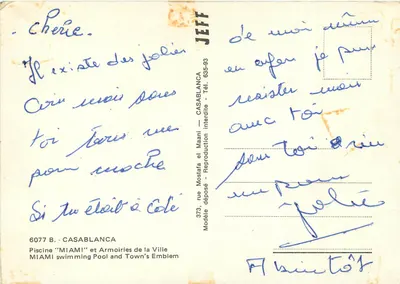 - chérie -
Il existe des jolies
Coin mais sans
toi tous me
pour moche
Si tu était à côté
6077 B. - CASABLANCA
Piscine "MIAMI" et Armoiries de la Ville
MIAMI swimming Pool and Town's Emblem
JEFF
373, rue Mostafa el Maani — CASABLANCA
Modèle déposé - Reproduction interdite - Tél. 635-93
de moi même
en enfer je peux
resister mais
avec toi
sans toi rien
joli
A bientôt